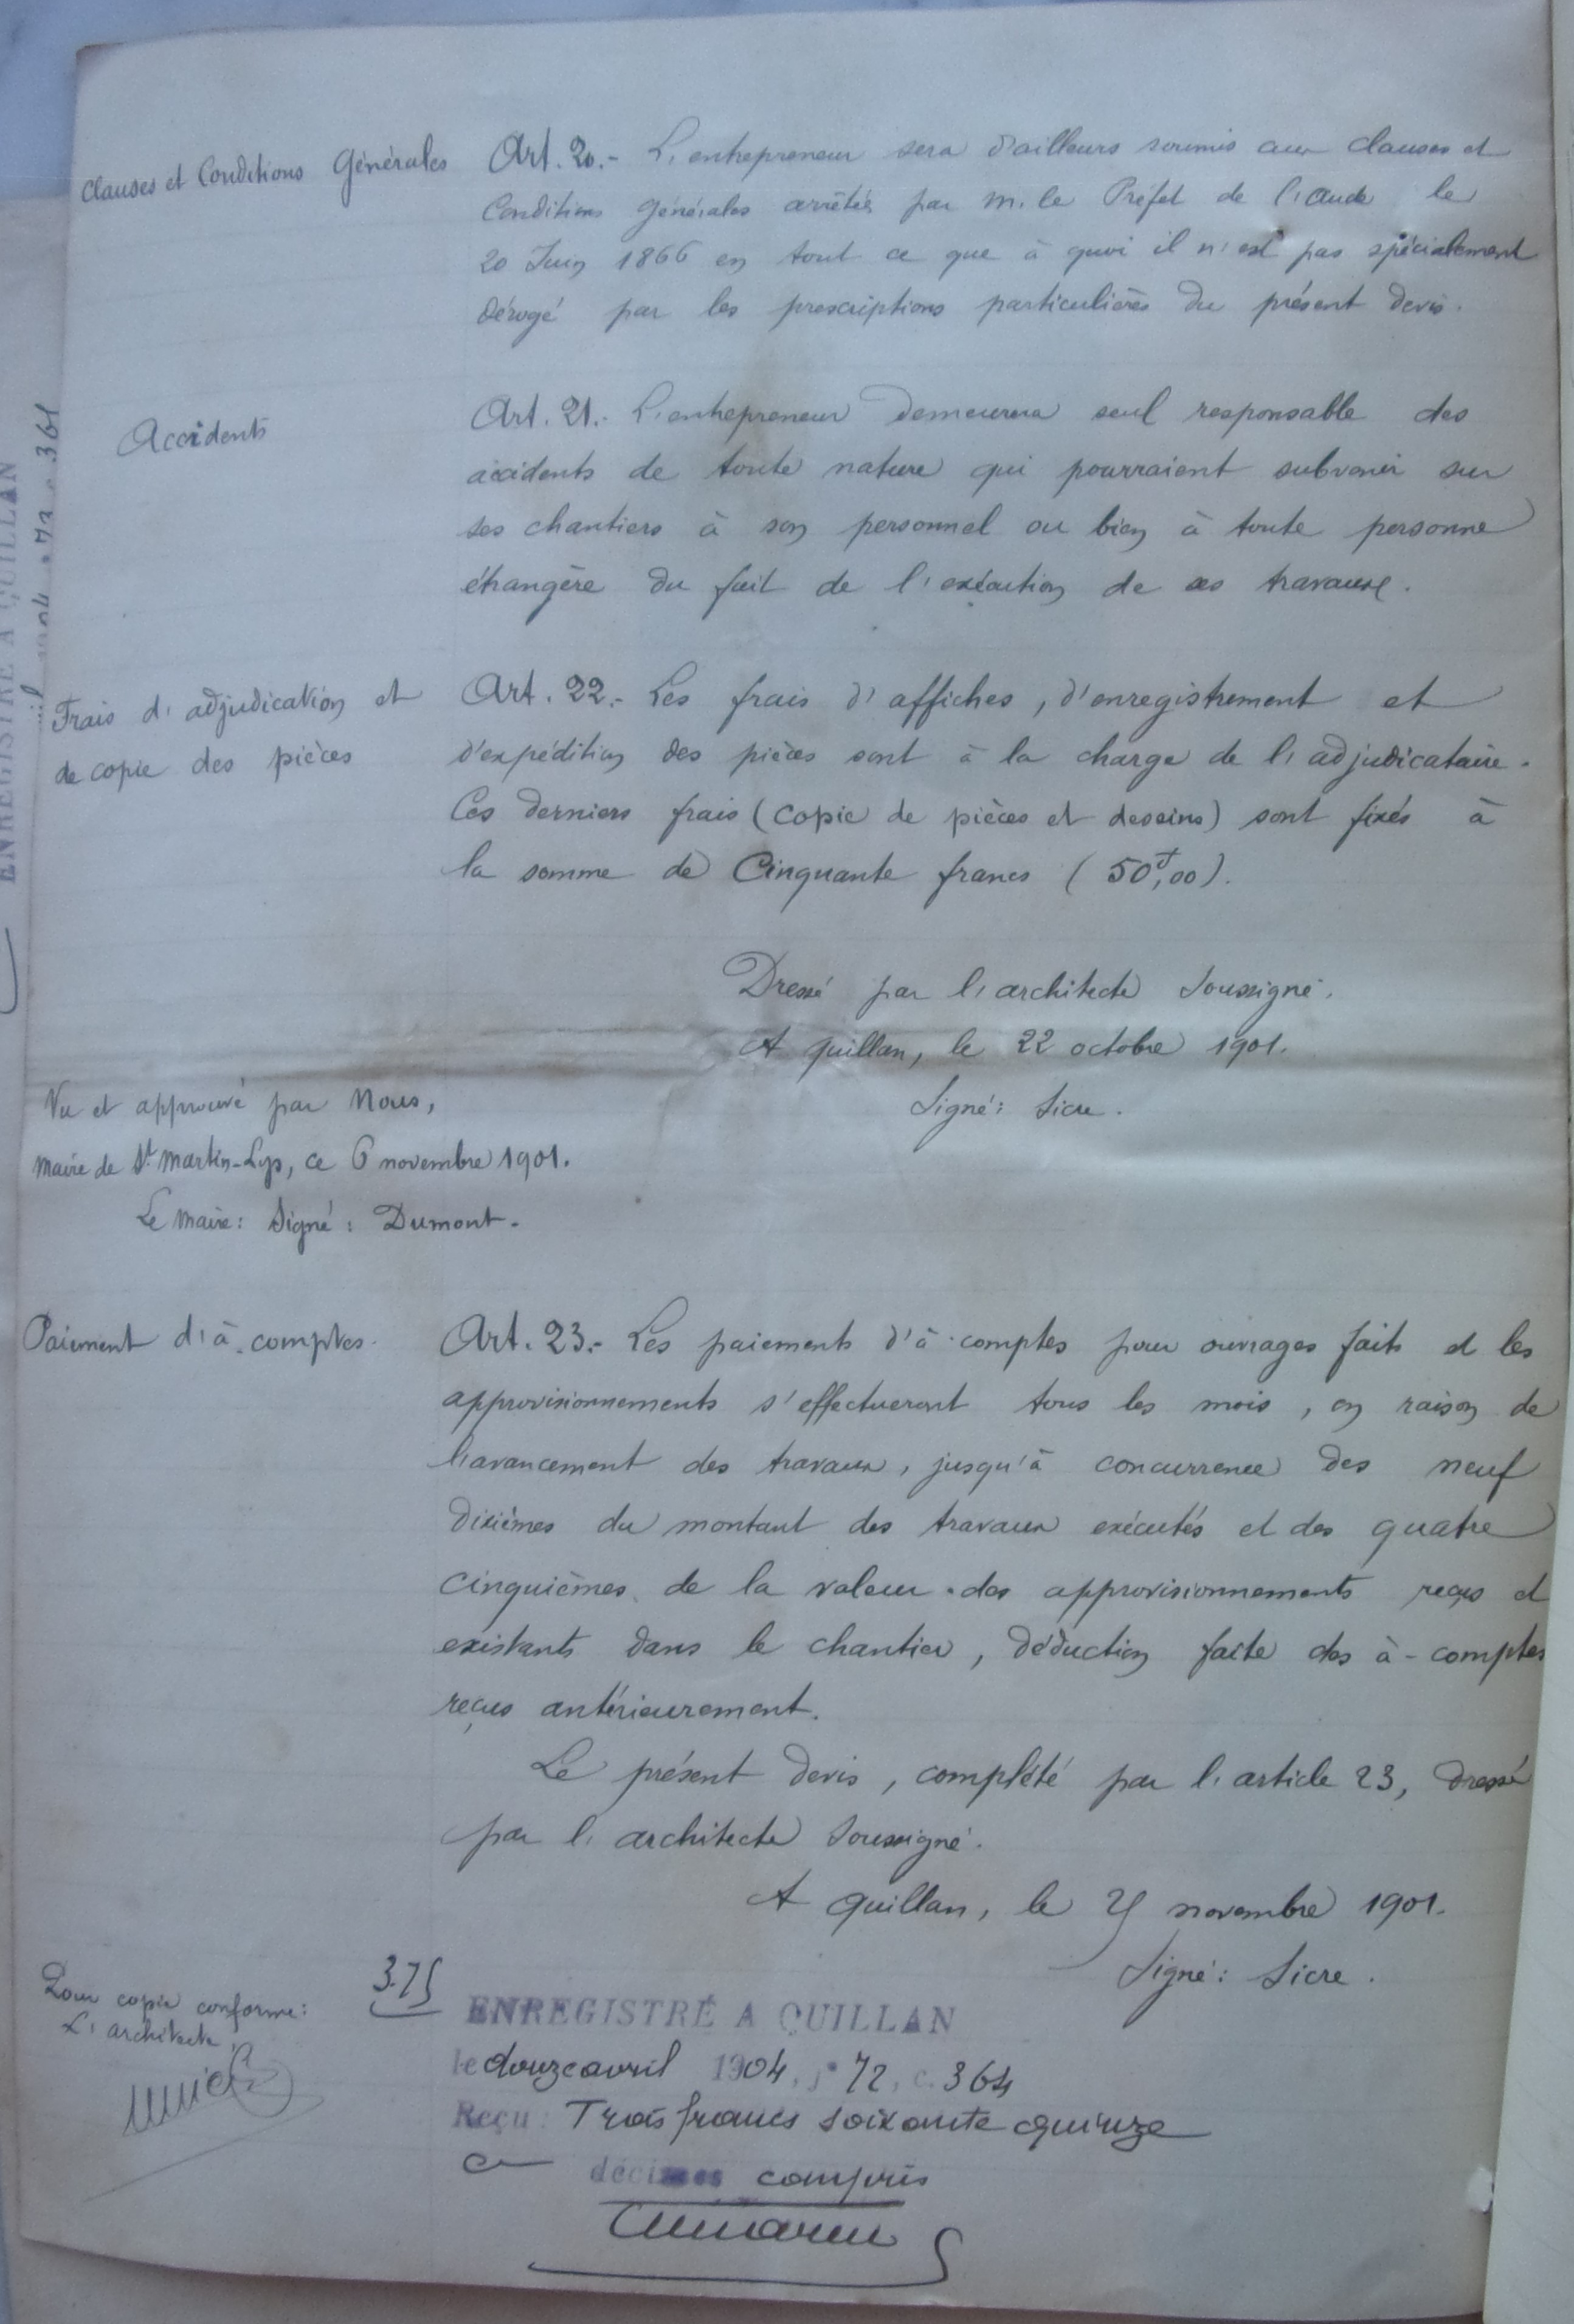 Clauses et Conditions Générales
Art. 20.- L'entrepreneur sera d'ailleurs soumis aux clauses et
Conditions Générales arrêtées par M. le Préfet de l'Aude le
20 Juin 1866 en tout ce que à quoi il n'est pas spécialement
dérogé par les prescriptions particulières du présent devis.
Accidents
Art. 21.- L'entrepreneur demeurera seul responsable des
accidents de toute nature qui pourraient subvenir sur
ses chantiers à son personnel ou bien à toute personne
étrangère du fait de l'exécution de ces travaux.
Frais d'adjudication et
de copie des pièces
Art. 22.- Les frais d'affiches, d'enregistrement et
d'expédition des pièces sont à la charge de l'adjudicataire.
Ces derniers frais (copie de pièces et dessins) sont fixés à
la somme de Cinquante francs (50f,00).
Dressé par l'architecte soussigné.
A Quillan, le 22 octobre 1901.
Signé: Sicre.
Vu et approuvé par Nous,
Maire de St Martin-Lys, ce 6 novembre 1901.
Le Maire: Signé: Dumont.
Paiement d'à-comptes.
Art. 23.- Les paiements d'à-comptes pour ouvrages faits et les
approvisionnements s'effectueront tous les mois, en raison de
l'avancement des travaux, jusqu'à concurrence des neuf
dixièmes du montant des travaux exécutés et des quatre
cinquièmes de la valeur des approvisionnements reçus et
existants dans le chantier, déduction faite des à-comptes
reçus antérieurement.
Le présent devis, complété par l'article 23, dressé
par l'architecte soussigné.
A Quillan, le novembre 1901.
Signé: Sicre.
Pour copie conforme:
L'architecte,
3.75
ENREGISTRÉ A QUILLAN
le douze avril 1904, f° 72, c. 364
Reçu: Trois francs soixante quinze
décimes compris
ENREGISTRÉ A QUILLAN